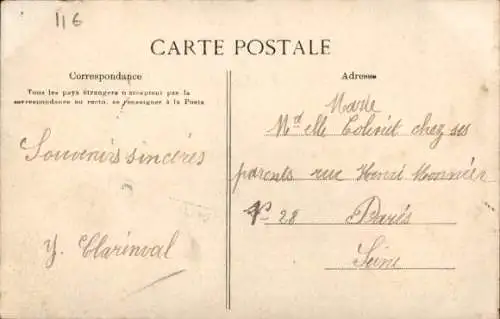 116
CARTE POSTALE
Correspondance
Tous les pays étrangers n'acceptent pas la
correspondance au recto, se renseigner à la Poste
Souvenirs sincéres
Y. Clarinval
Adresse
Marie
Md elle Colinet chez ses
parents rue Henri Monnier
No 28 Paris
Seine